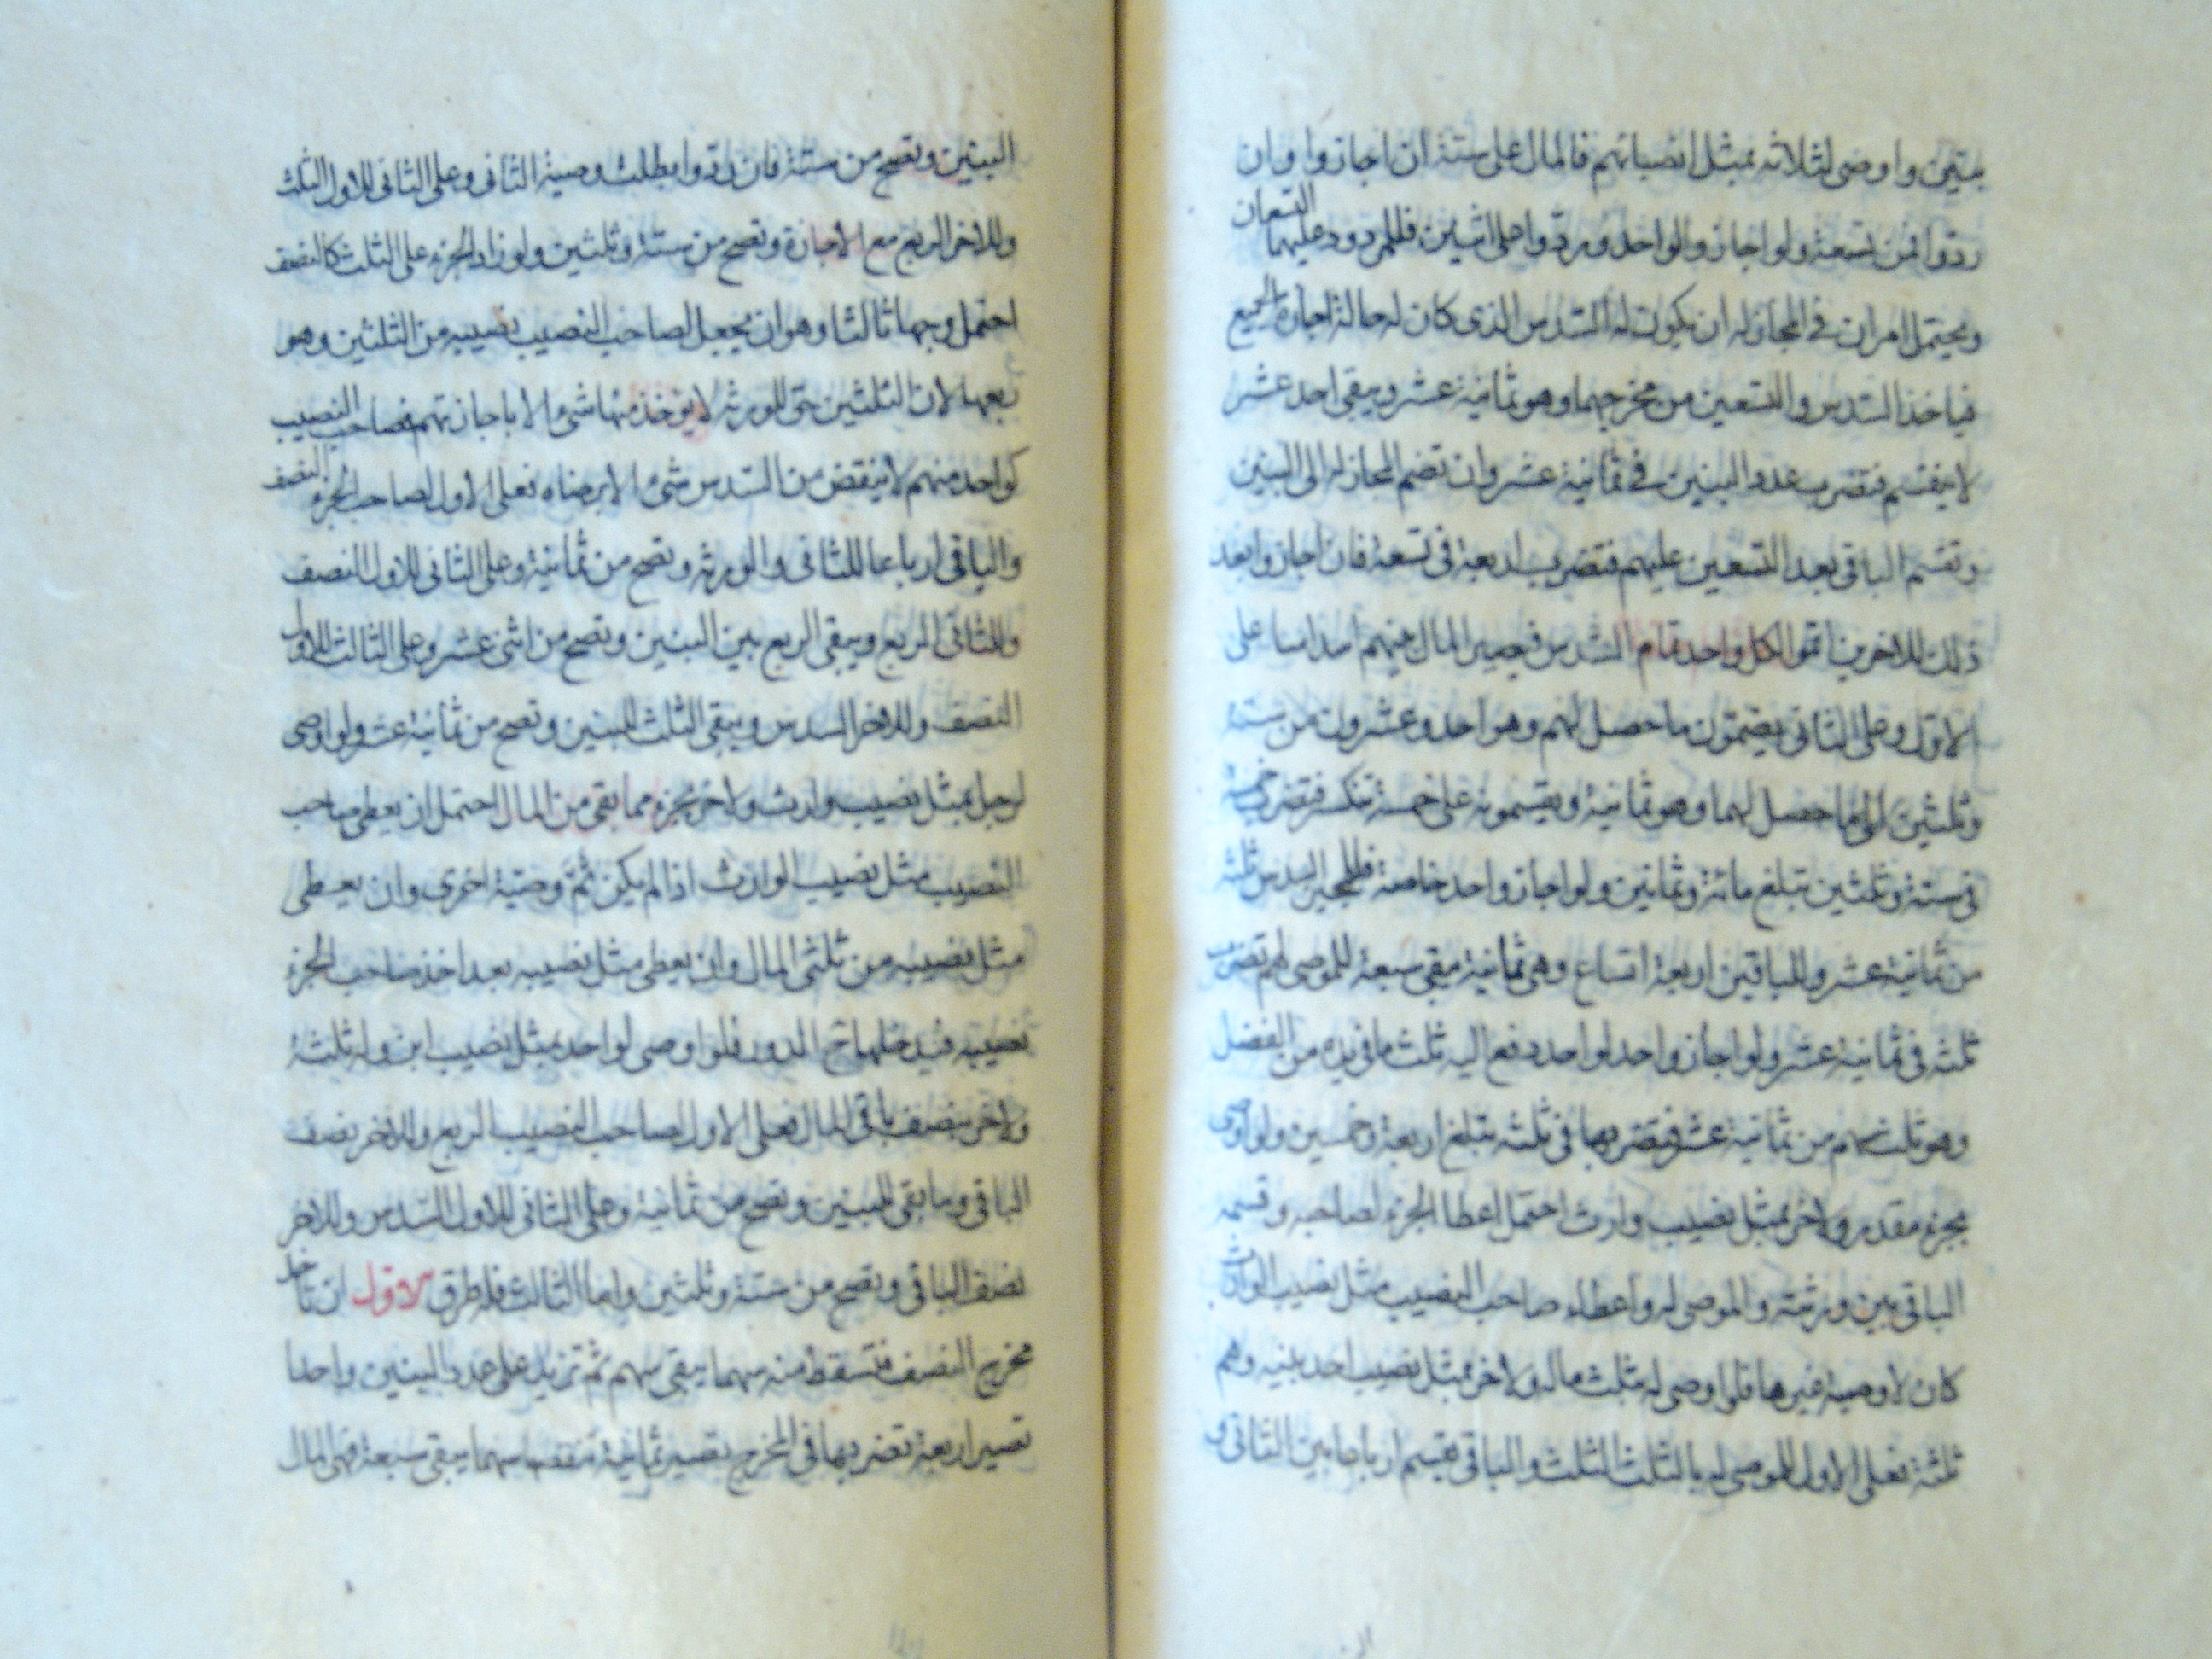 ستين واوصى لثلاثة بمثل انصبائهم فالمال على ستة ان اجازوا وان
ردوا فمن تسعة ولو اجازوا لواحد وردوا على اثنين فللمردود عليهما التسعان
ويحتمل امران في المجاز له ان يكون له السدس الذى كان له حالة اجازة الجميع
فياخذ السدس والتسعين من مخرجهما وهو ثمانية عشر ويبقى احد عشر
لا ينقسم فتضرب عدد البنين في ثمانية عشر وان تضم المجاز له الى البنين
وتقسم الباقى بعد التسعين عليهم فتضرب اربعة فى تسعة فان اجازوا بعد
ذلك للاخرين اتموا لكل واحد تمام السدس فيصير المال بينهم اسداسا على
الاول وعلى الثانى يضمون ما حصل لهم وهو احد وعشرون من ستة
وثلثين الى ما حصل لهما وهو ثمانية ويقسمونه على خمسة تنكسر فتضرب خمسة
فى ستة وثلثين تبلغ مائة وثمانين ولو اجاز واحد خاصة فللمجيز السدس ثلثة
من ثمانية عشر وللباقين اربعة اتساع وهى ثمانية يبقى سبعة للموصى لهم تضرب
ثلثه فى ثمانية عشر ولو اجاز واحد لواحد دفع اليه ثلث ما فى يده من الفضل
وهو ثلث سهم من ثمانية عشر فتضربها فى ثلثه تبلغ اربعة وخمسين ولو اوصى
بجزء مقدر ولاخر بمثل نصيب وارث احتمل اعطا الجزء لصاحبه وقسمة
الباقى بين ورثته والموصى له واعطاء صاحب النصيب مثل نصيب الوارث
كان لا وصية غيرها فلو اوصى له بثلث ماله ولاخر بمثل نصيب احد بنيه وهم
ثلثة فعلى الاول للموصى له بالثلث الثلث والباقى يقسم ارباعا بين الثانى و
البنين وتصح من ستة فان ردوا بطلت وصية الثانى وعلى الثانى للاول الثلث
وللاخر الربع مع الاجازة وتصح من ستة وثلثين ولو زاد الجزء على الثلث كالنصف
احتمل وجها ثالثا وهو ان يجعل لصاحب النصيب نصيبه من الثلثين وهو
ربعهما لان الثلثين حق للورثه لا يوخذ منها شىء الا باجازتهم فصاحب النصيب
كواحد منهم لا ينقض من السدس شىء الا برضاه فعلى الاول لصاحب الجزء النصف
والباقى ارباعا للثانى والورثه وتصح من ثمانية وعلى الثانى للاول النصف
وللثانى الربع ويبقى الربع بين البنين وتصح من اثنى عشر وعلى الثالث للاول
النصف وللاخر السدس ويبقى الثلث للبنين وتصح من ثمانية عشر ولو اوصى
لرجل بمثل نصيب وارث ولاخر بجزء مما بقى من المال احتمل ان يعطى صاحب
النصيب مثل نصيب الوارث اذا لم يكن ثم وصية اخرى وان يعطى
مثل نصيبه من ثلثى المال وان يعطى مثل نصيبه بعد اخذ صاحب الجزء
نصيبه فيدخلها ح الدور فلو اوصى لواحد بمثل نصيب ابن وله ثلثة
ولاخر بنصف باقى المال فعلى الاول لصاحب النصيب الربع وللاخر نصف
الباقى وما بقى للبنين وتصح من ثمانية وعلى الثانى للاول السدس وللاخر
نصف الباقى وتصح من ستة وثلثين واما الثالث فله طرق الاول ان تاخذ
مخرج النصف فتسقط منه سهما يبقى سهم ثم تزيد على عدد البنين واحدا
تصير اربعة تضربها فى المخرج تصير ثمانية تنقصها سهما يبقى سبعة فهى المال